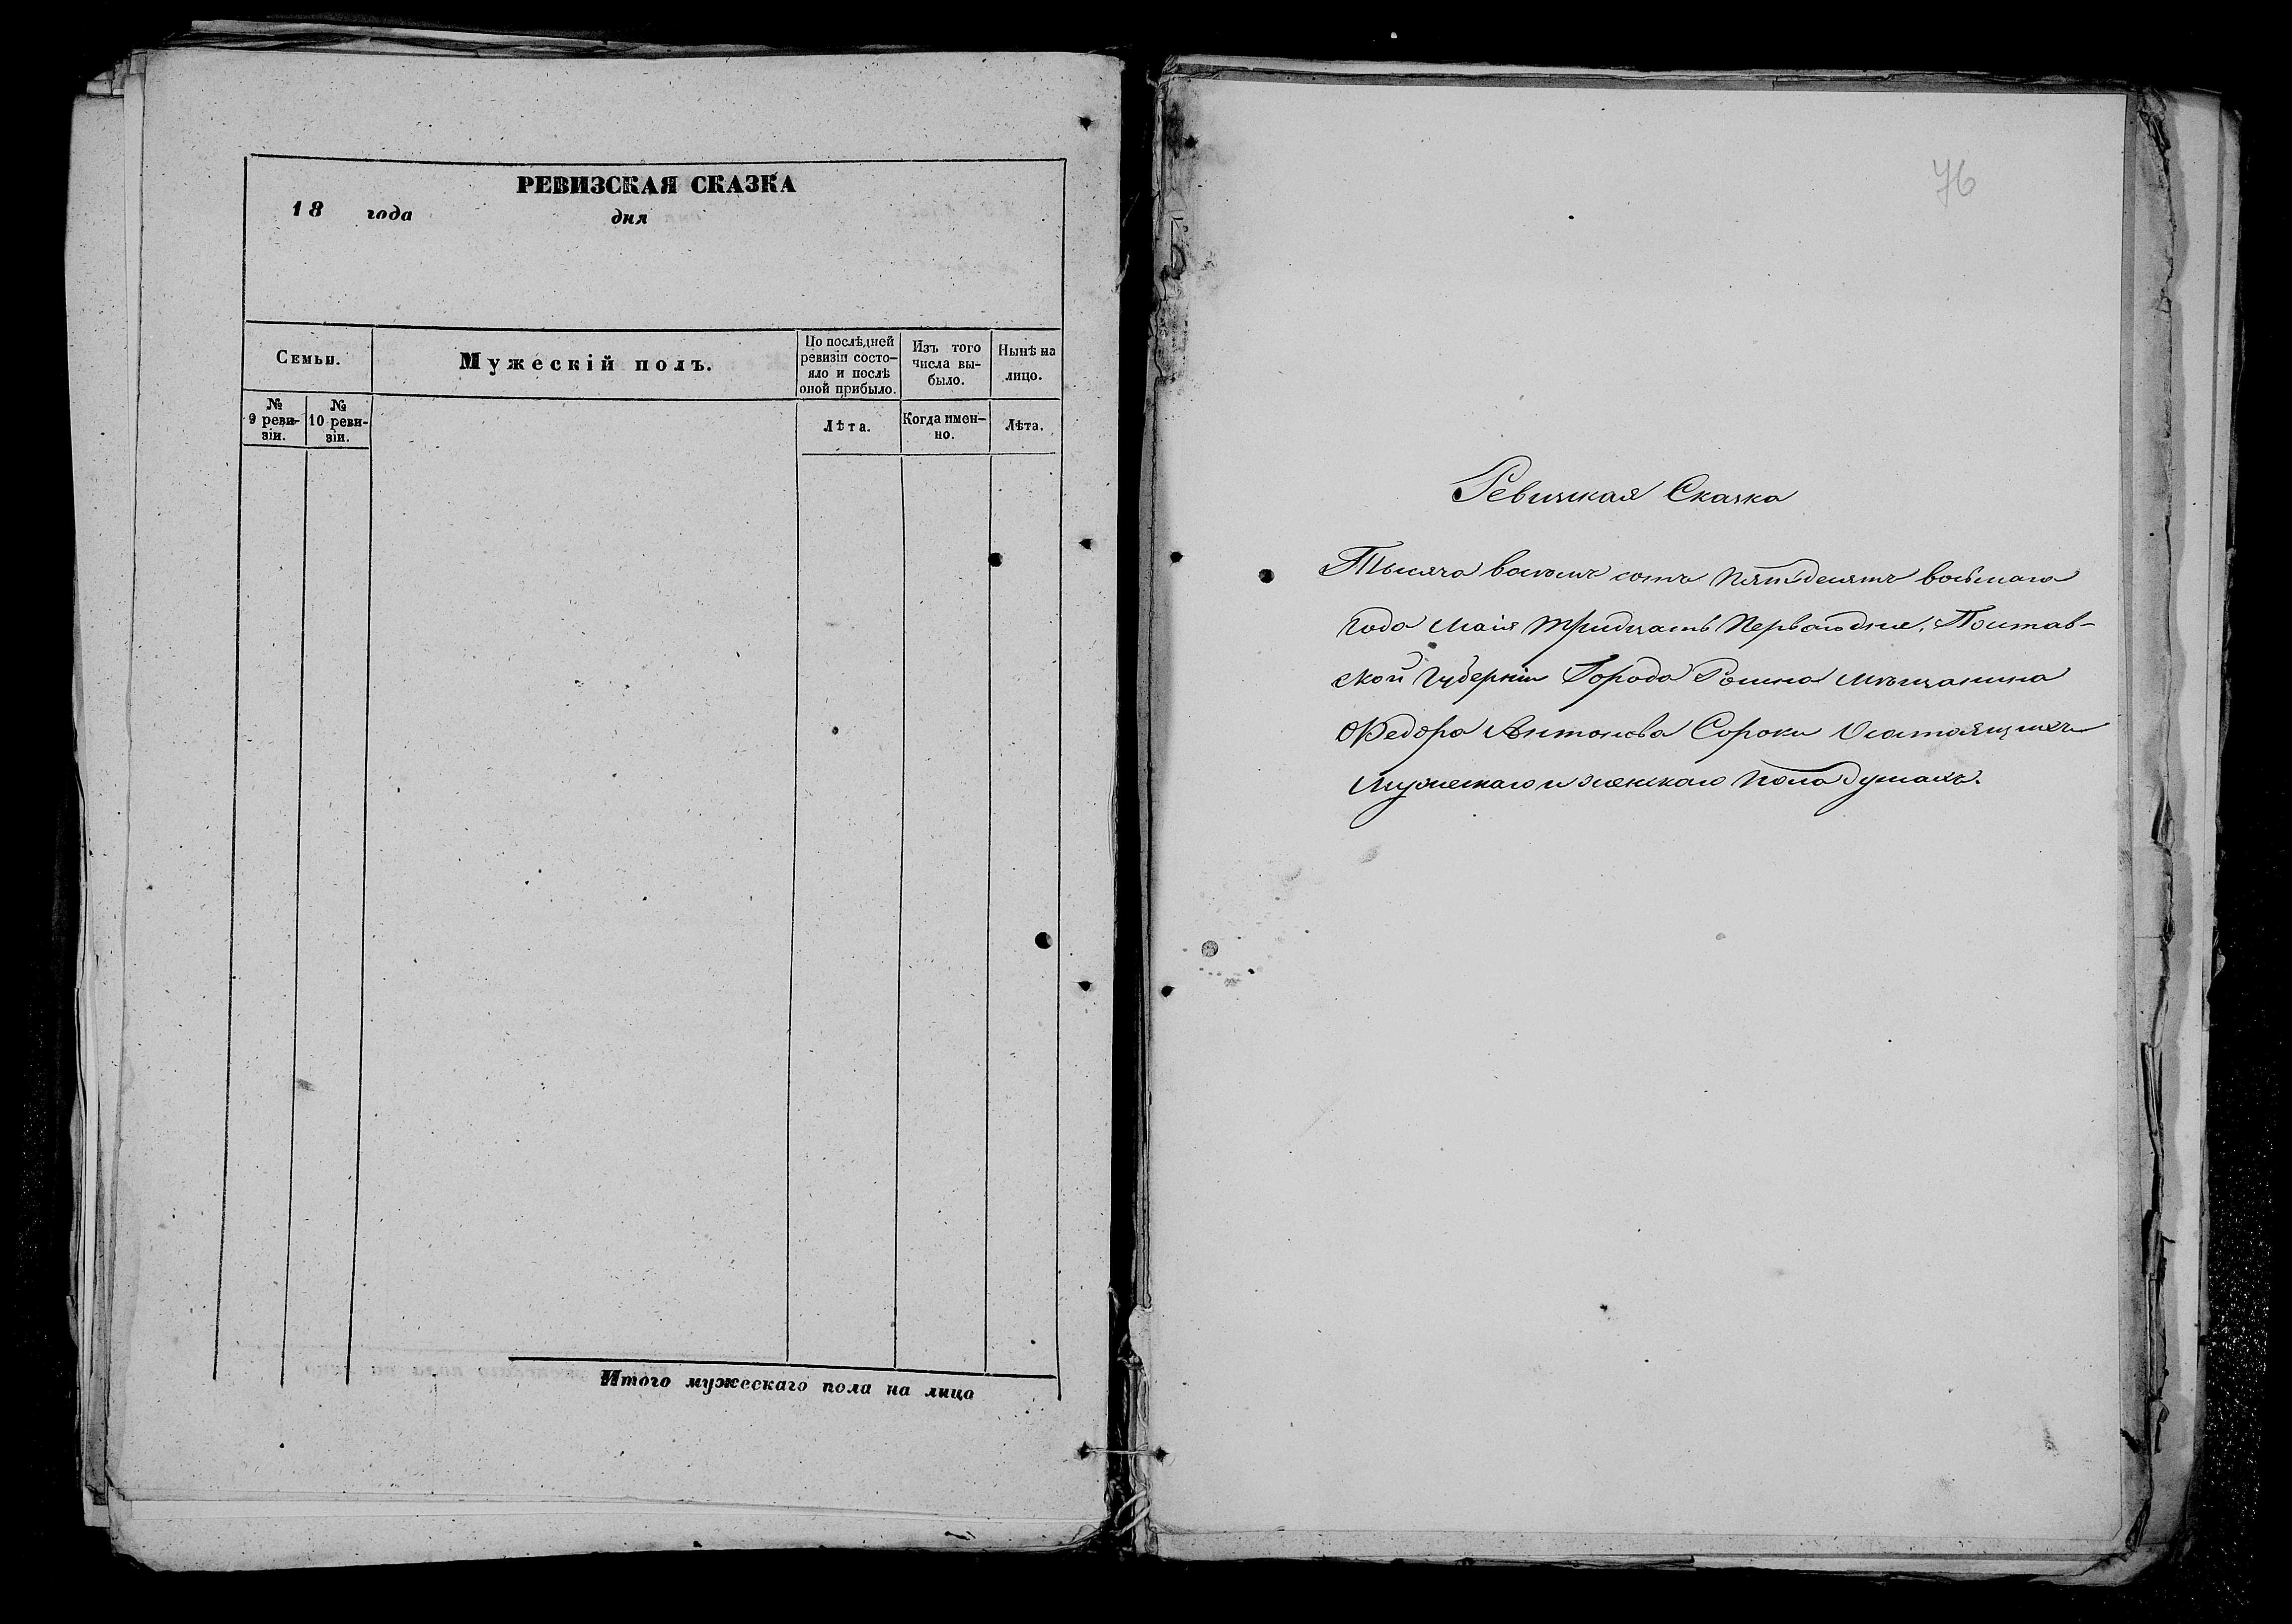 РЕВИЗСКАЯ СКАЗКА
18 года дня
Семьи.
Мужескій полъ.
По послѣдней ревизіи состо-
яло и послѣ оной прибыло.
Изъ того числа вы-
было.
Нынѣ на лицо.
№ 9 реви-
зіи.
№ 10 реви-
зіи.
Лѣта.
Когда имен-
но.
Лѣта.
Итого мужескаго пола на лицо
76
Ревизкая Сказка
Тысяча восемь сотъ Пятьдесятъ восьмаго
года Маія тридцать Перваго дня, Полтав-
ской Губерніи Города Ромна мѣщанина
Федора Антонова Сороки О состоящихъ
мужескаго и женскаго Пола душахъ.